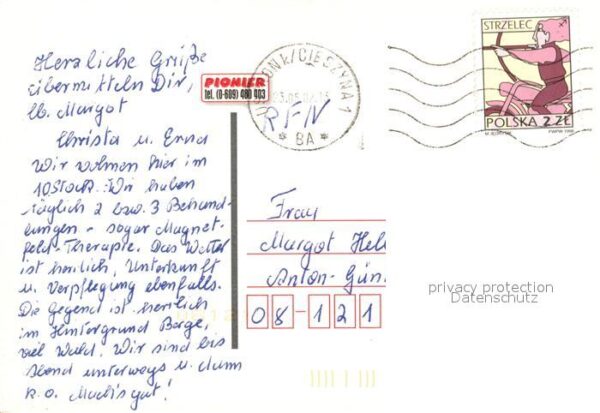 Herzliche Grüße
übermitteln Dir,
lb. Margot
Christa u. Erna
Wir wohnen hier im
10 Stock. Wir haben
täglich 2 bzw. 3 Behand-
lungen - sogar Magnet-
feld-Therapie. Das Wetter
ist herrlich, Unterkunft
u. Verpflegung ebenfalls.
Die Gegend ist herrlich
im Hintergrund Berge,
viel Wald. Wir sind bis
abend unterwegs u. dann
k.o. Mach's gut!
PIONIER
tel. (0-609) 480 903
K/CIESZYNA 1
* BA *
RFN
STRZELEC
POLSKA 2 ZŁ
PWPW 1996
Frau
Margot Hel
Anton-Gün
08-121
privacy protection
Datenschutz